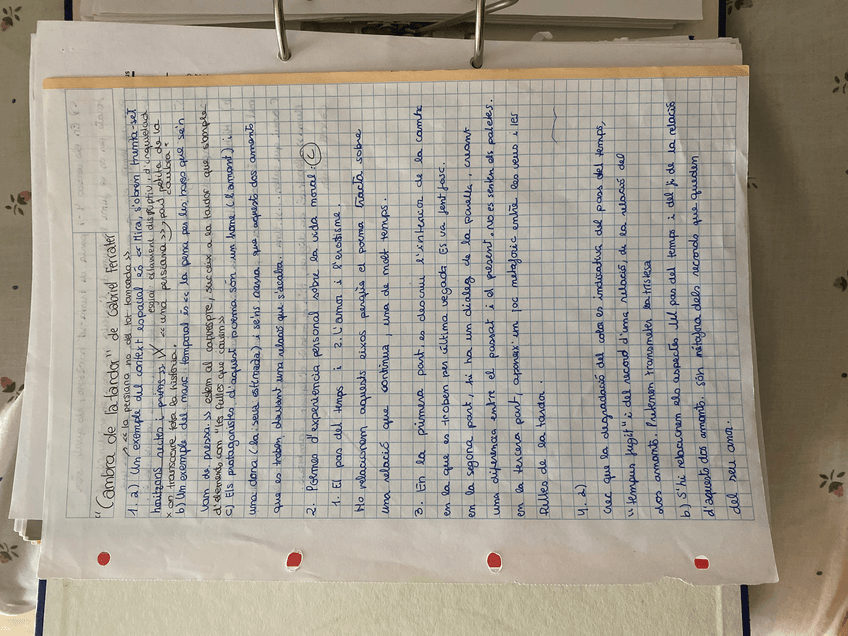 "Cambra de la tardor" de Gabriel Ferrater
« la persiana no del tot tancada »
1. a) Un exemple del context espaial és « Mira, s'obren trenta-set
horitzons rectes i prims »
espai disruptiu, d'inquietud
« una persiana » → part petita de la cambra.
* on transcorre tota la història.
b) Un exemple del marc temporal és « la pena per les hores que se'n
van de pressa. » estem al capvespre, succeix a la tardor que s'omple
d'elements com "les fulles que cauen"
c) Els protagonistes d'aquest poema són un home (l'amant) i
una dona (la seva estimada) i se'ns narra que aquests dos amants
que es troben, davant una relació que s'acaba.
2. Poemes d'experiència personal sobre la vida moral. C
1. El pas del temps i 2. L'amor i l'erotisme.
Ho relacionem aquests eixos perquè el poema tracta sobre
una relació que continua, una de molt temps.
3. En la primera part es descriu l'interior de la cambra
en la que es troben per última vegada. Es va fent fosc.
en la segona part, hi ha un diàleg de la parella, creant
una diferència entre el passat i el present. No és senten els paletes.
en la tercera part, apareix un joc metafòric entre les veus i les
fulles de la tardor.
4. a)
Crec que la degradació del color es indicativa del paos del temps,
"tempus fugit" i del record d'una relació, de la relació del
dos amants. Pretenen transmetre la tristesa
b) S'hi relacionen els aspectes del pas del temps i del fi de la relació
d'aquests dos amants. són metàfora dels records que queden
del seu amor.